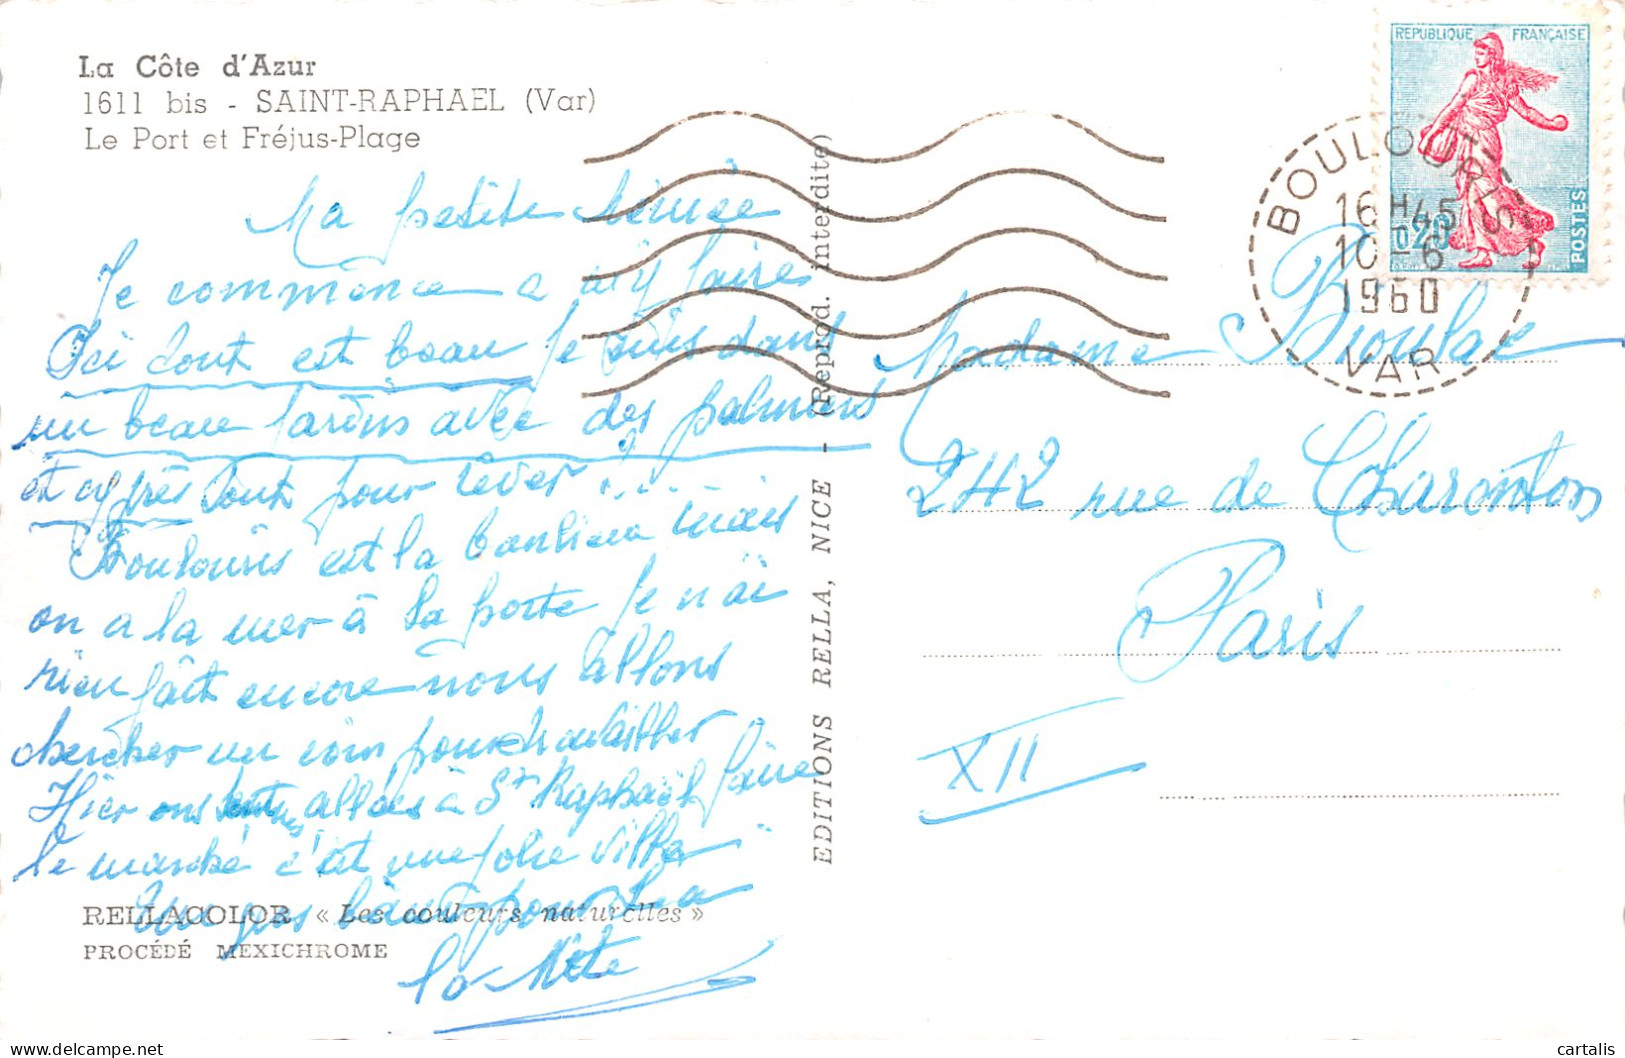 La Côte d'Azur
1611 bis - SAINT-RAPHAEL (Var)
Le Port et Fréjus-Plage
Ma petite
Je commence a m'y faire
Ici tout est beau Je suis dans
un beau Jardins avec des palmiers
et cyprès tout pour rêver !.....
Boulouris est la banlieue mais
on a la mer à la porte Je n'ai
rien fait encore nous allons
chercher un coin pour travailler
Hier ons allées à St Raphaël faire
le marché c'est une jolie villa
la
RELLACOLOR « Les couleurs naturelles »
PROCÉDÉ MEXICHROME
EDITIONS RELLA, NICE - (Reprod. interdite)
REPUBLIQUE FRANÇAISE
0,20
POSTES
BOULOURIS
16H45
10-6
1960
VAR
Madame Bioulac
242 rue de Charonton
Paris
XII
cartalis